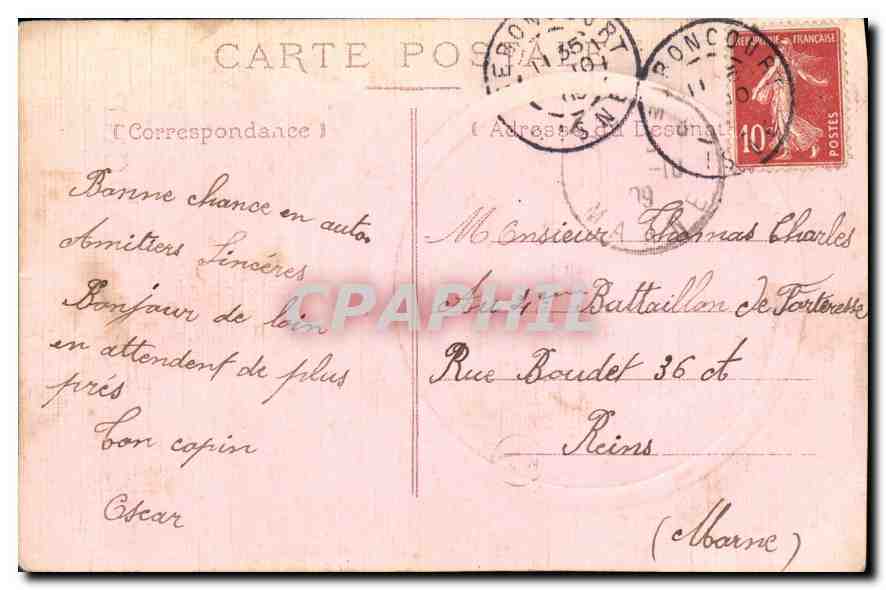 CARTE POSTALE
[Correspondance]
Bonne chance en auto.
Amitiers Sincéres
Bonjour de loin
en attendent de plus
prés
Ton copin
Oscar
[Adresse du Destinataire]
Monsieur Thomas Charles
Au 4eme Battaillon de Forteresse
Rue Boudet 36 ct
Reins
(Marne)
REPUBLIQUE FRANÇAISE
10c
POSTES
CPAPHIL